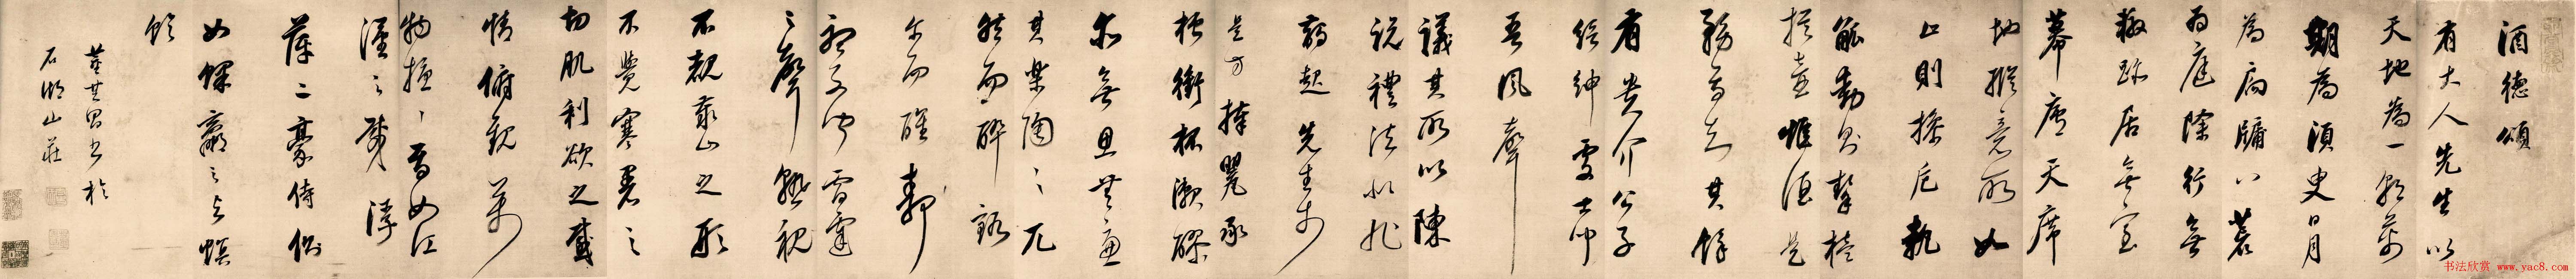 酒德頌
有大人先生以
天地為一朝萬
期為須史日月
為扃牖八荒
為庭除行無
轍跡居無室
幕廬天席
地縱意所如
止則操卮執
觚動則挈榼
提壺惟酒是
務焉知其餘
有貴介公子
縉紳處士聞
吾風聲
議其所以陳
說禮法是非
鋒起先生於
是方捧罌承
槽銜杯漱醪
無思無慮
其樂陶〻兀
然而醉豁
爾而醒靜
聽不聞雷霆
之聲熟視
不覩泰山之形
不覺寒暑之
切肌利欲之感
情俯觀萬
物擾〻焉如江
漢之載浮
萍二豪侍側
如蜾蠃之與螟
蛉
董其昌書於
石湖山莊
书法欣赏 www.yac8.com